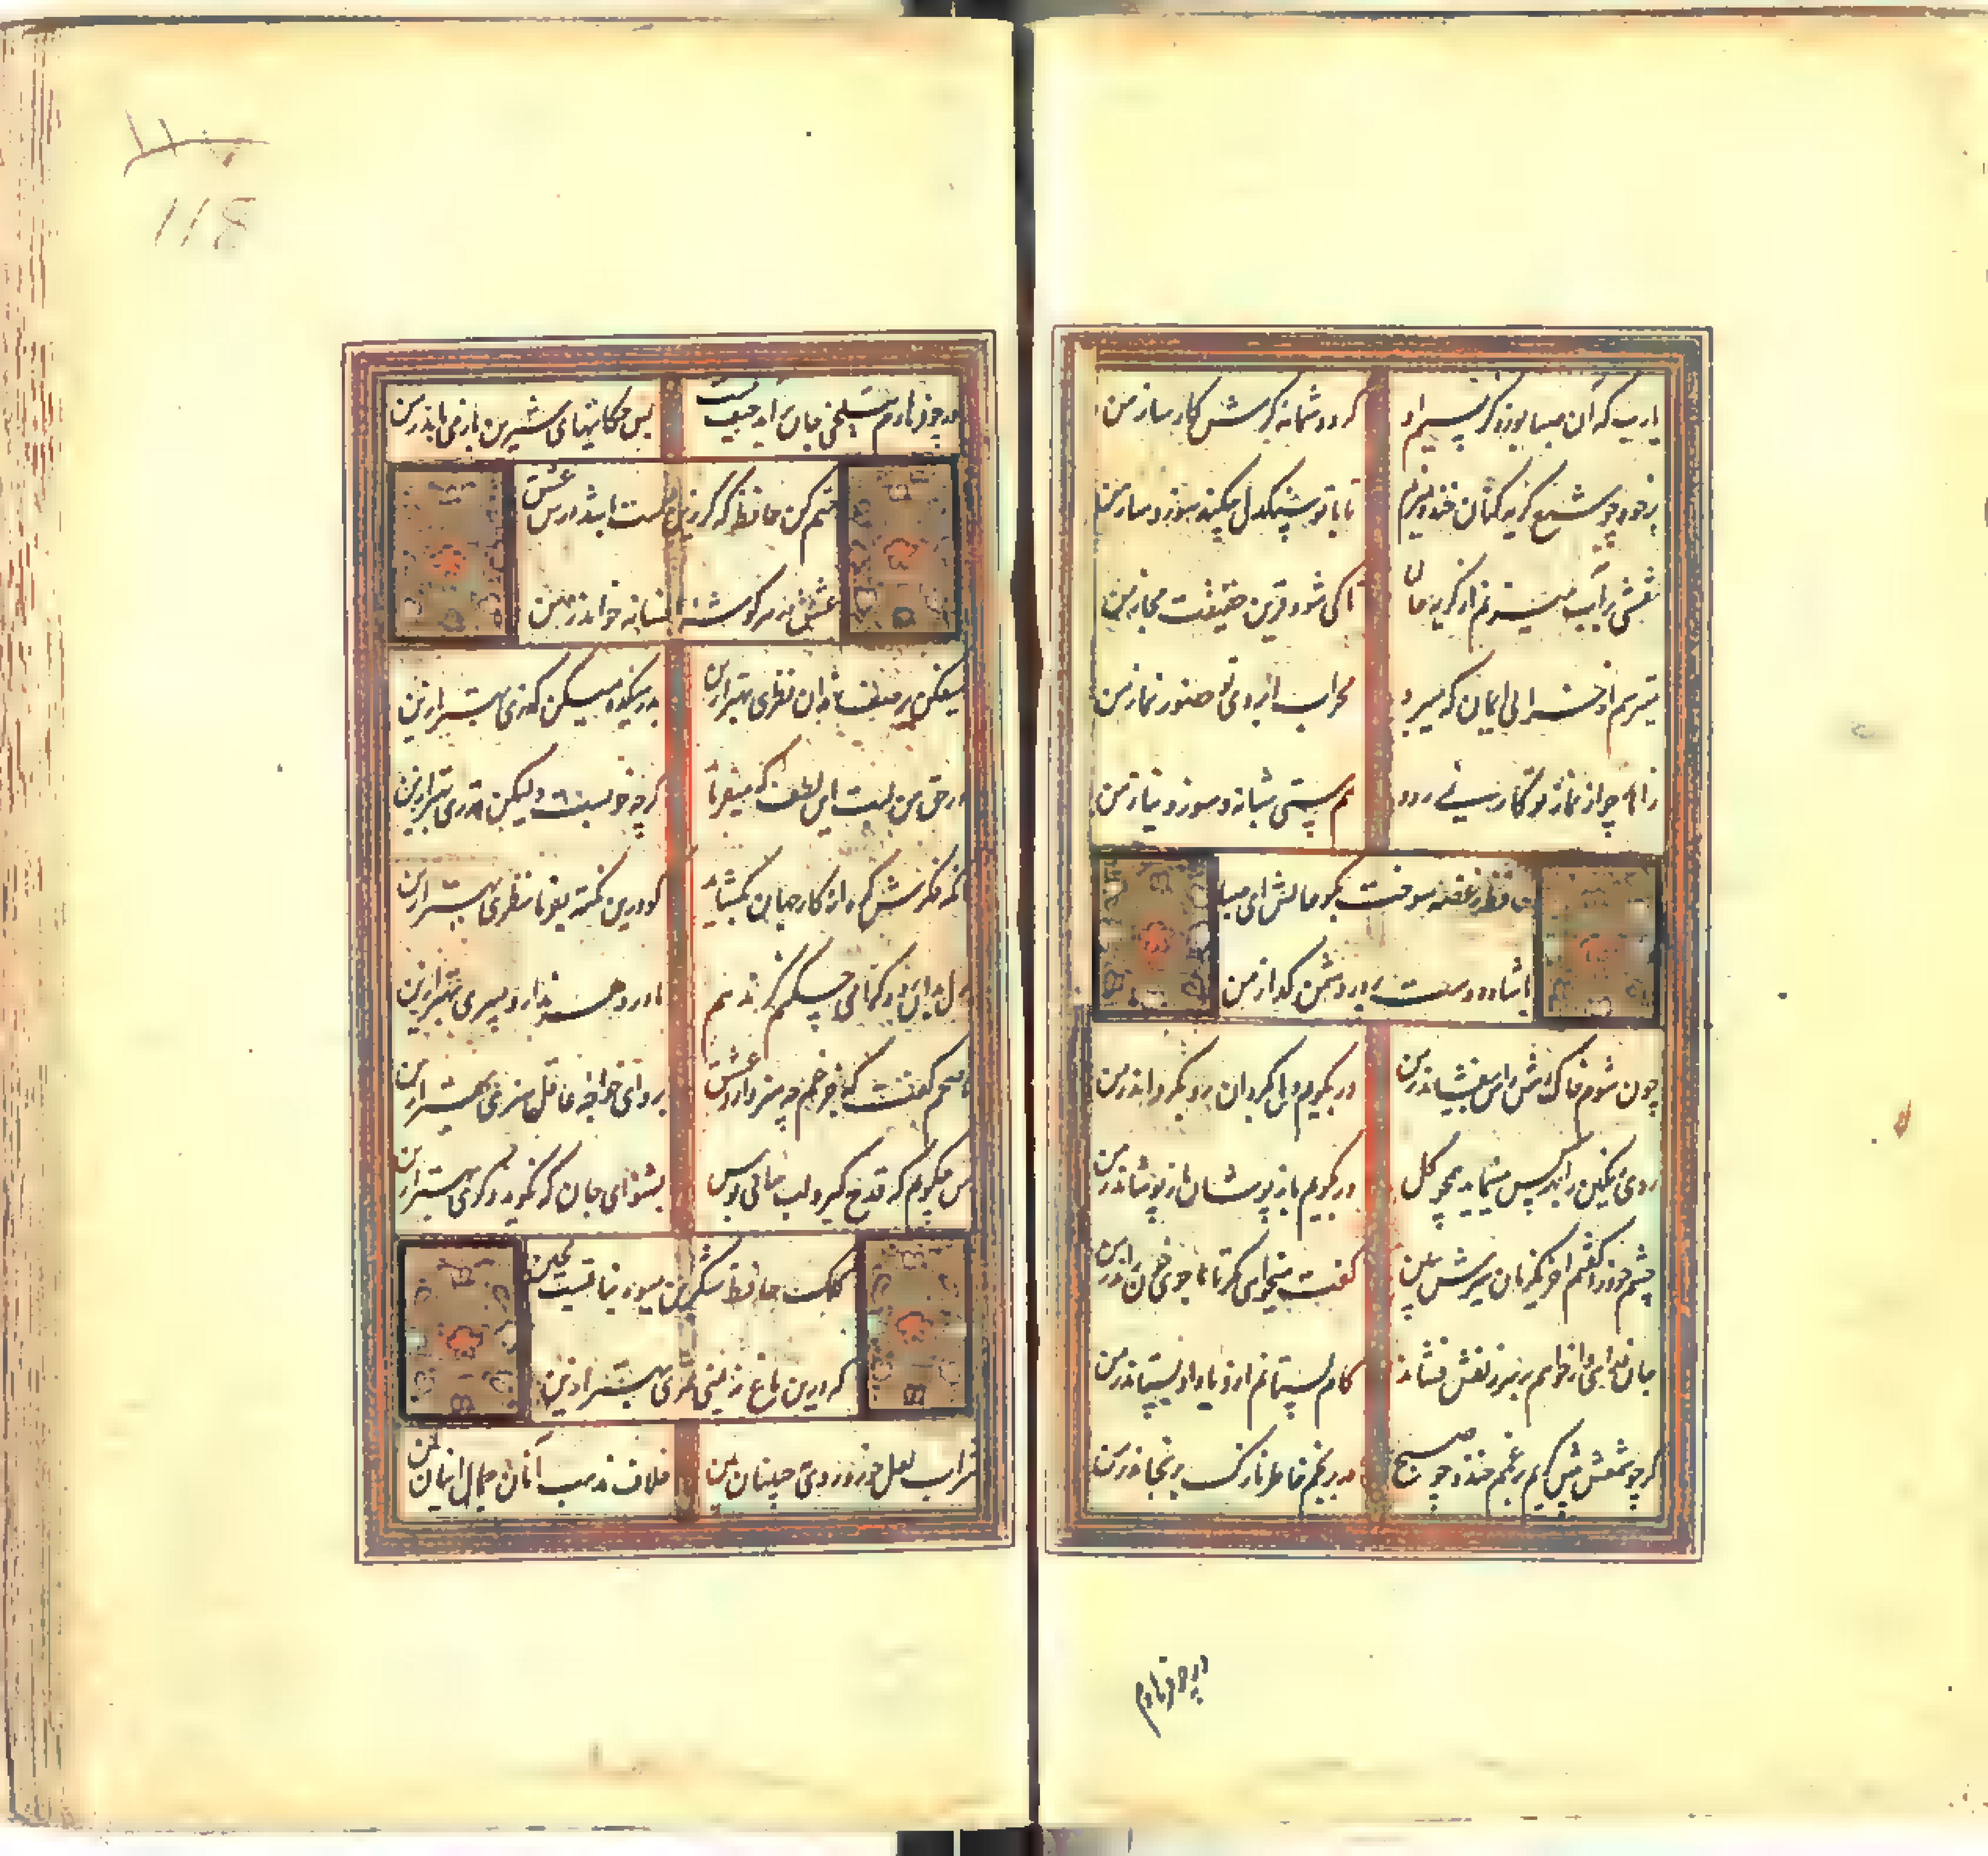 یارب که آن صبا بوزد کز نسیم او گردد شمامه کرمش کارساز من
بر خود چو شمع گریه کنان خنده میزنم تا با تو سنگدل چکند سوز و ساز من
نقشی بر آب میزنم از گریه حالیا تا کی شود قرین حقیقت مجاز من
میترسم از خرابی ایمان که میبرد محراب ابروی تو حضور نماز من
زاهد چو از نماز تو کاری نمی رود هم مستی شبانه و سوز و نیاز من
حافظ ز غصه سوخت بگو حالش ای صبا
با شاه دوست پرور دشمن گداز من
چون شوم خاک رهش دامن بیفشاند ز من ور بگویم دل بگردان رو بگرداند ز من
روی رنگین را بهر کس مینماید همچو گل ور بگویم باز پوشان باز پوشاند ز من
چشم خود را گفتم آخر یک نظر سیرش ببین گفت میخواهی مگر تا جوی خون راند ز من
او بخونم تشنه
گر چو شمعش پیش میرم بر غمم خندد چو صبح ور برنجم خاطر نازک برنجاند ز من
ور چو فرهادم
ور چو فرهادم بتلخی جان برآید حیف نیست بس حکایتهای شیرین باز می ماند ز من
ختم کن حافظ که گر زین دست باشد درس عشق
عشق در هر گوشه افسانه خواند ز من
میفکن بر صف رندان نظری بهتر ازین بر در میکده میکن گذری بهتر ازین
در حق من لبت این لطف که میفرماید گرچه خوبست ولیکن قدری بهتر ازین
آنکه فکرش گره از کار جهان بگشاید گو درین نکته بفرما نظری بهتر ازین
دل بدان رود گرامی چکنم گر ندهم مادر دهر ندارد پسری بهتر ازین
ناصحم گفت که جز غم چه هنر دارد عشق برو ای خواجه عاقل هنری بهتر ازین
من چو گویم که قدح گیر و لب ساقی بوس بشنو ای جان که نگوید دگری بهتر ازین
کلک حافظ شکرین میوه نباتیست بچین
که درین باغ نبینی ثمری بهتر ازین
شراب لعل خور و روی مه جبینان بین خلاف مذهب آنان جمال اینان بین
118